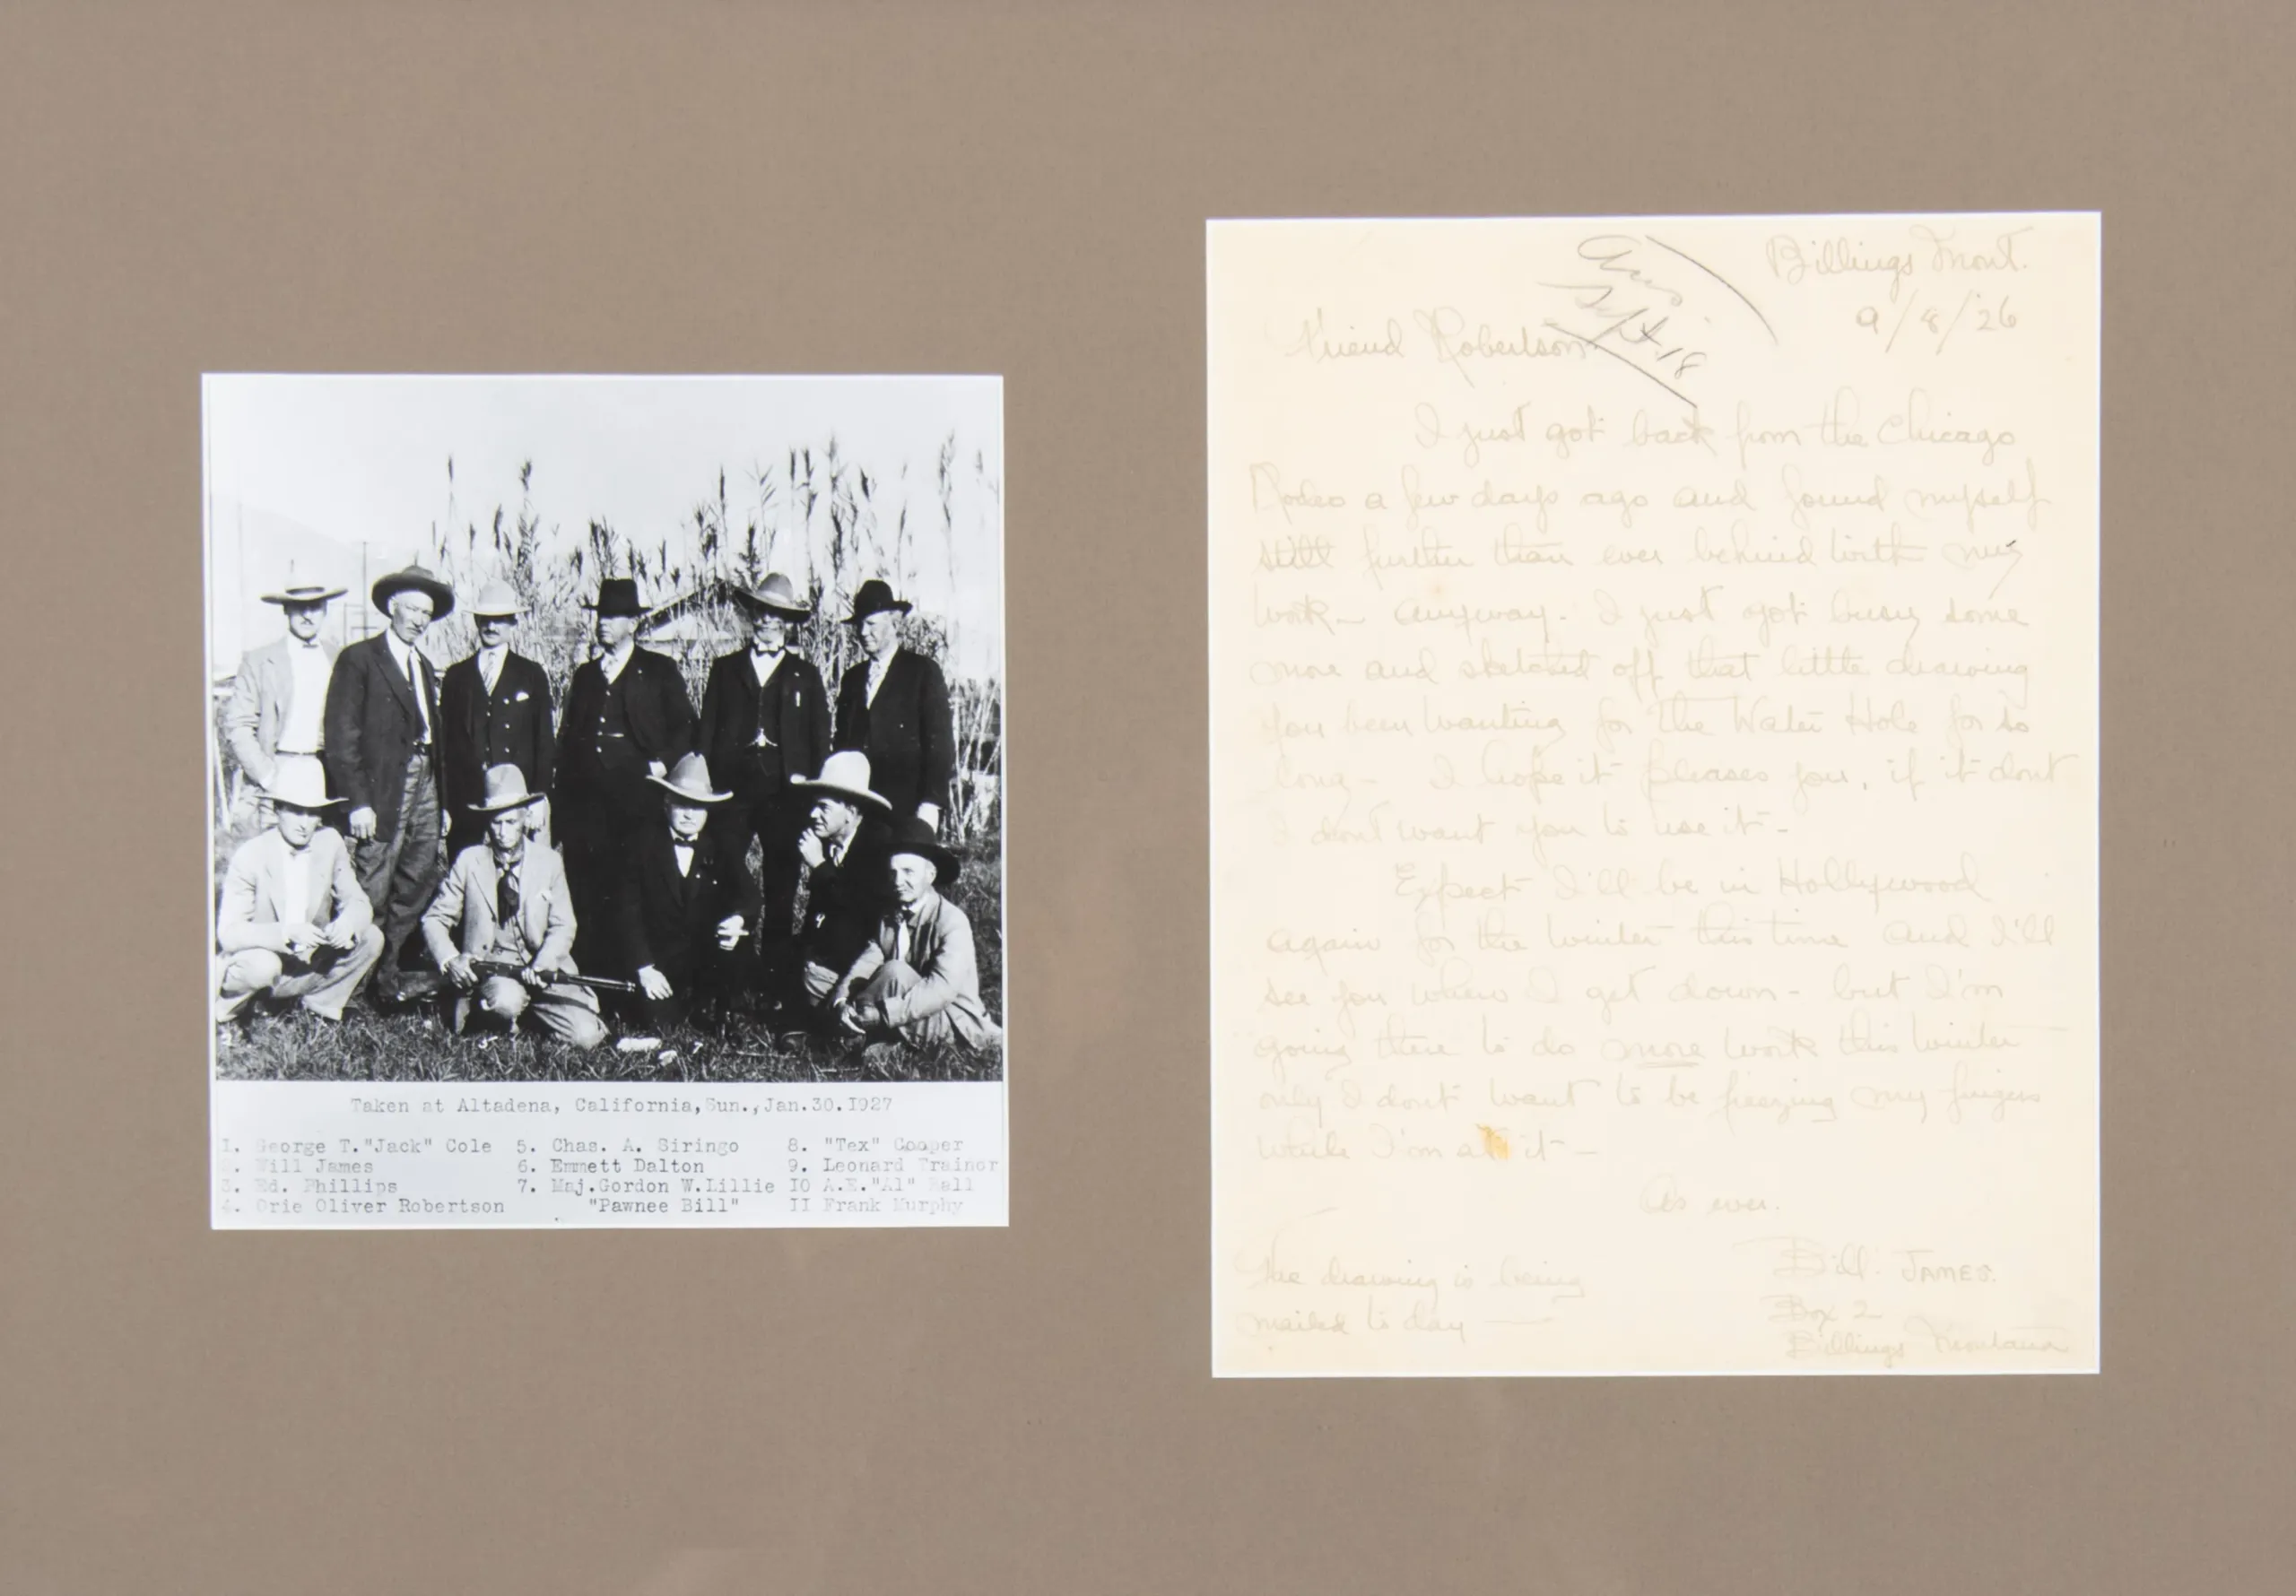 Taken at Altadena, California, Sun., Jan.30.1927
1. George T."Jack" Cole
2. Will James
3. Ed. Phillips
4. Orie Oliver Robertson
5. Chas. A. Siringo
6. Emmett Dalton
7. Maj.Gordon W.Lillie
"Pawnee Bill"
8. "Tex" Cooper
9. Leonard Trainor
10 A.E."Al" Ball
11 Frank Murphy
Ans
Sept 18
Billings Mont.
9/8/26
Friend Robertson
I just got back from the Chicago
Rodeo a few days ago and found myself
still further than ever behind with my
work - anyway. I just got busy some
more and sketched off that little drawing
you been wanting for The Water Hole for so
long - I hope it pleases you, if it dont
I dont want you to use it -
Expect I'll be in Hollywood
again for the winter this time and I'll
see you when I get down - but I'm
going there to do more work this winter
only I dont want to be freezing my fingers
while I'm at it -
As ever.
Bill. JAMES.
Box 2
Billings Montana
The drawing is being
mailed to day